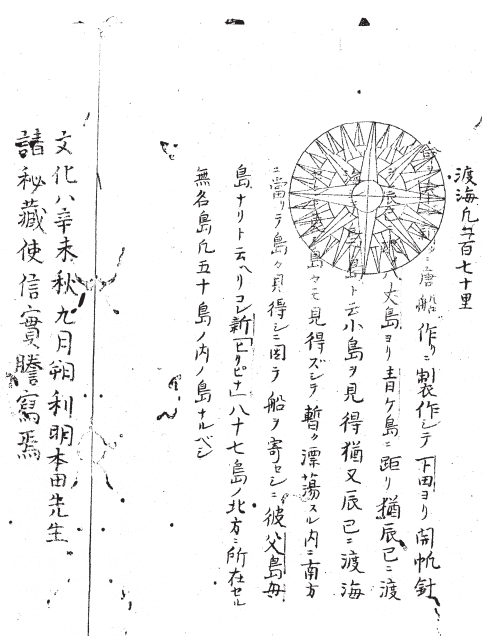 渡海凡五百七十里
唐船作リニ製作シテ下田ヨリ開帆針
八丈島ヨリ青ケ島ニ距リ猶辰巳ニ渡
島ト云小島ヲ見得猶又辰巳ニ渡海
島々モ見得ズシテ暫ク漂蕩スル内ニ南方
ニ當リテ島々見得シニ因テ船ヲ寄セシニ彼父島母
島ナリト云ヘリコレ新「ヒリピナ」八十七島ノ北方ニ所在セル
無名島凡五十島ノ内ノ島ナルベシ
文化八辛未秋九月朔利明本田先生
請秘藏使信實謄寫焉